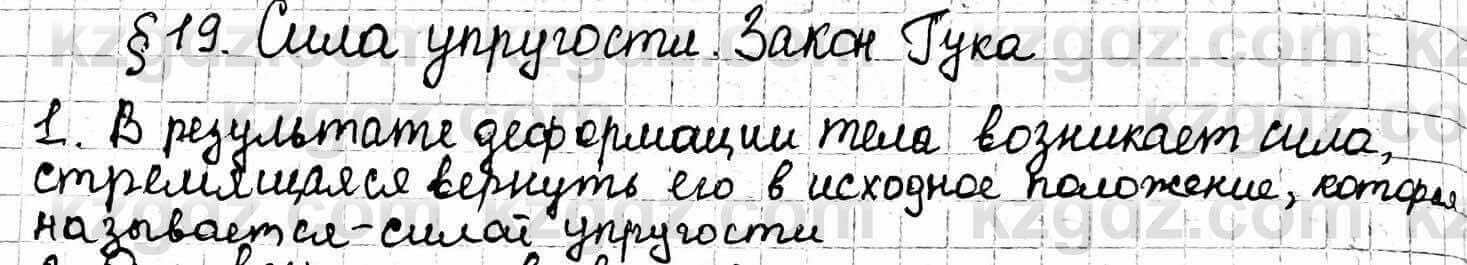 § 19. Сила упругости. Закон Гука
1. В результате деформации тела возникает сила,
стремящаяся вернуть его в исходное положение, которая
называется-силой упругости